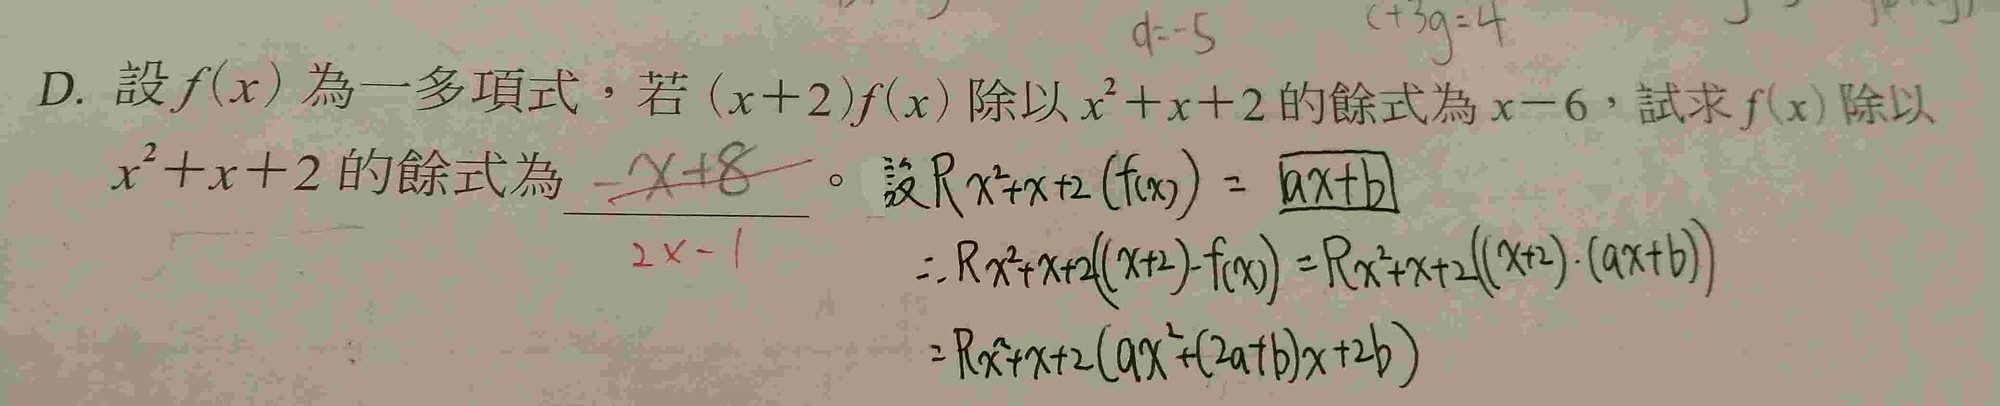 d=-5
c+3g=4
D. 設 f(x) 為一多項式，若 (x+2)f(x) 除以 x²+x+2 的餘式為 x-6，試求 f(x) 除以
x²+x+2 的餘式為 -x+8 。 設 R x²+x+2 (f(x)) = ax+b
2x-1
∴ R x²+x+2((x+2)·f(x)) = R x²+x+2((x+2)·(ax+b))
= R x²+x+2 (ax²+(2a+b)x+2b)